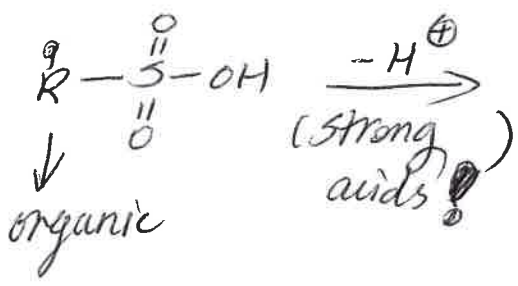 O
R — S — OH
O
– H ⊕
(strong
acids!)
organic